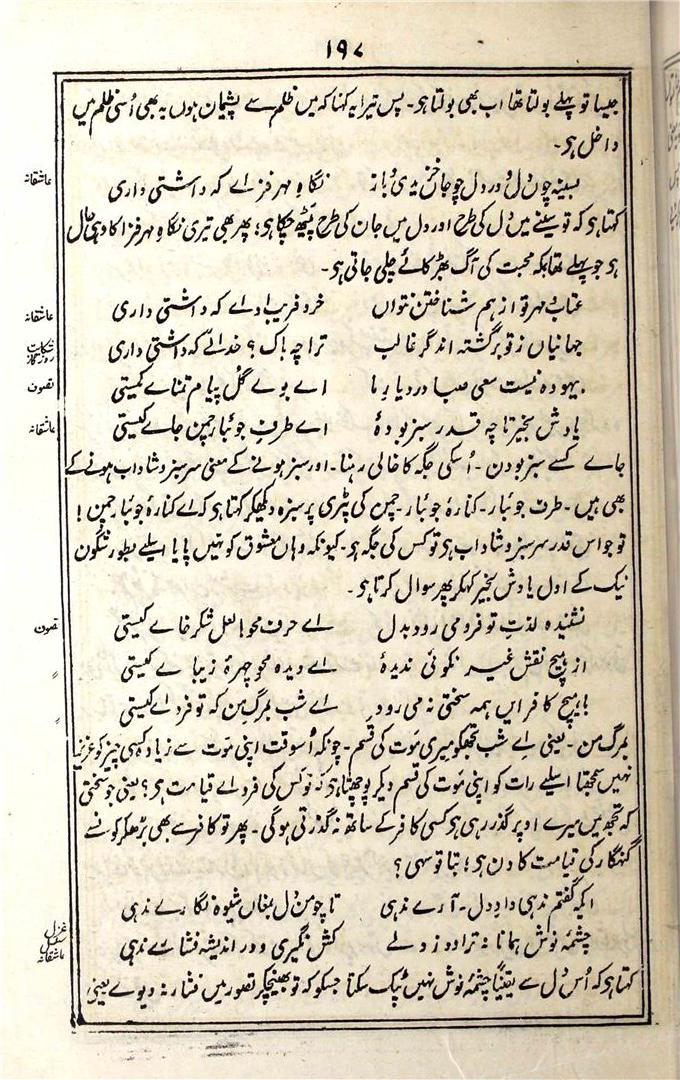 ۱۹۷
جیسا تو پہلے بولتا تھا اب بھی بولتا ہو۔ پس تیرا یہ کہنا کہ میں ظلم سے پشیمان ہوں یہ بھی اُسی ظلم میں
داخل ہو۔
عاشقانہ
بسینہ چون دل و در دل چو جان خزیدی و باز نگاہِ مہر فزاے کہ داشتی داری
کہتا ہو کہ تو سینے میں دل کی طرح اور دل میں جان کی طرح پیٹھ چکا ہو؛ پھر بھی تیری نگاہِ مہر فزا کا وہی حال
ہو جو پہلے تھا بلکہ محبت کی آگ بھڑکائے چلی جاتی ہو۔
عاشقانہ
عتاب و مہر تو از ہم شناختن نتواں خرد فریب اداے کہ داشتی داری
شکایت روزگار
جہانیاں ز تو برگشتہ اند گر غالب ترا چہ باک؟ خدائے کہ داشتی داری
تصوف
بیہودہ نیست سعی صبا در دیارِ ما اے بوے گل پیامِ تمناے کیستی
عاشقانہ
یادش بخیر تا چہ قدر سبز بودۂ اے طرفِ جوئبارِ چمن جاے کیستی
جاے کسے سبز بودن۔ اُسکی جگہ کا خالی رہنا۔ اور سبز ہونے کے معنی سرسبز و شاداب ہونے کے
بھی ہیں۔ طرف جوئبار۔ کنارۂ جوئبار۔ چمن کی پٹری پر سبزہ دیکھکر کہتا ہو کہ اے کنارۂ جوئبارِ چمن!
تو جو اس قدر سرسبز و شاداب ہو تو کس کی جگہ ہو۔ کیونکہ وہاں معشوق کو نہیں پایا اسلیے بطور شگون
نیک کے اول یادش بخیر کہکر پھر سوال کرتا ہو۔
تصوف
نشنیدہ لذتِ تو فرو می رود بدل اے حرف محو لعلِ شکر خاے کیستی
〃
از ہیچ نقش غیر نکوئی ندیدۂ اے دیدہ محوِ چہرۂ زیباے کیستی
〃
با ہیچ کافر ایں ہمہ سختی نہ می رود اے شب بمرگِ من کہ تو فرداے کیستی
بمرگِ من۔ یعنی اے شب تجھکو میری موت کی قسم۔ چونکہ اُسوقت اپنی موت سے زیادہ کسی چیز کو عزیز
نہیں سمجھتا اسلیے رات کو اپنی موت کی قسم دیکر پوچھتا ہو کہ تو کس کی فرداے قیامت ہو؟ یعنی جو سختی
کہ تجھ میں میرے اوپر گذر رہی ہو کسی کافر کے ساتھ نہ گذرتی ہوگی۔ پھر تو کافر سے بھی بڑھکر کونسے
گنہگار کی قیامت کا دن ہو؛ بتا تو سہی؟
غزل مسلسل عاشقانہ
ایکہ گفتم ندہی دادِ دل۔ آرے ندہی تا چو من دل بمغاں شیوہ نگارے ندہی
چشمۂ نوش ہمانا نہ تراود ز دلے کش نگیری و در اندیشہ فشارے ندہی
کہتا ہو کہ اُس دل سے یقیناً چشمۂ نوش نہیں ٹپک سکتا جسکو کہ تو بھینچکر تصور میں فشار نہ دیوے یعنی